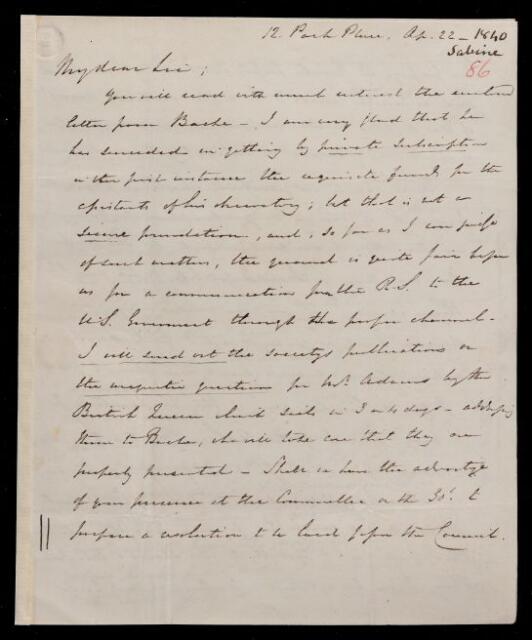 12. Park Place. Ap. 22 - 1840
Sabine
86
My dear Sir;
You will read with much interest the enclosed
letter from Bache - I am very glad that he
has succeeded in getting by private subscription
in the first instance the requisite funds for the
assistants of his observatory; but that is not a
secure foundation, and, so far as I can judge
of such matters, the ground is quite fair before
us for a communication from the R.S. to the
U.S. Government through the proper channel -
I will send out the society's publications on
the magnetic question for Mr. Adams by the
British Queen which sails in 3 or 4 days - addressing
them to Bache, who will take care that they are
properly presented - Shall we have the advantage
of your presence at the Committee on the 30th. to
prepare a resolution to be laid before the Council.